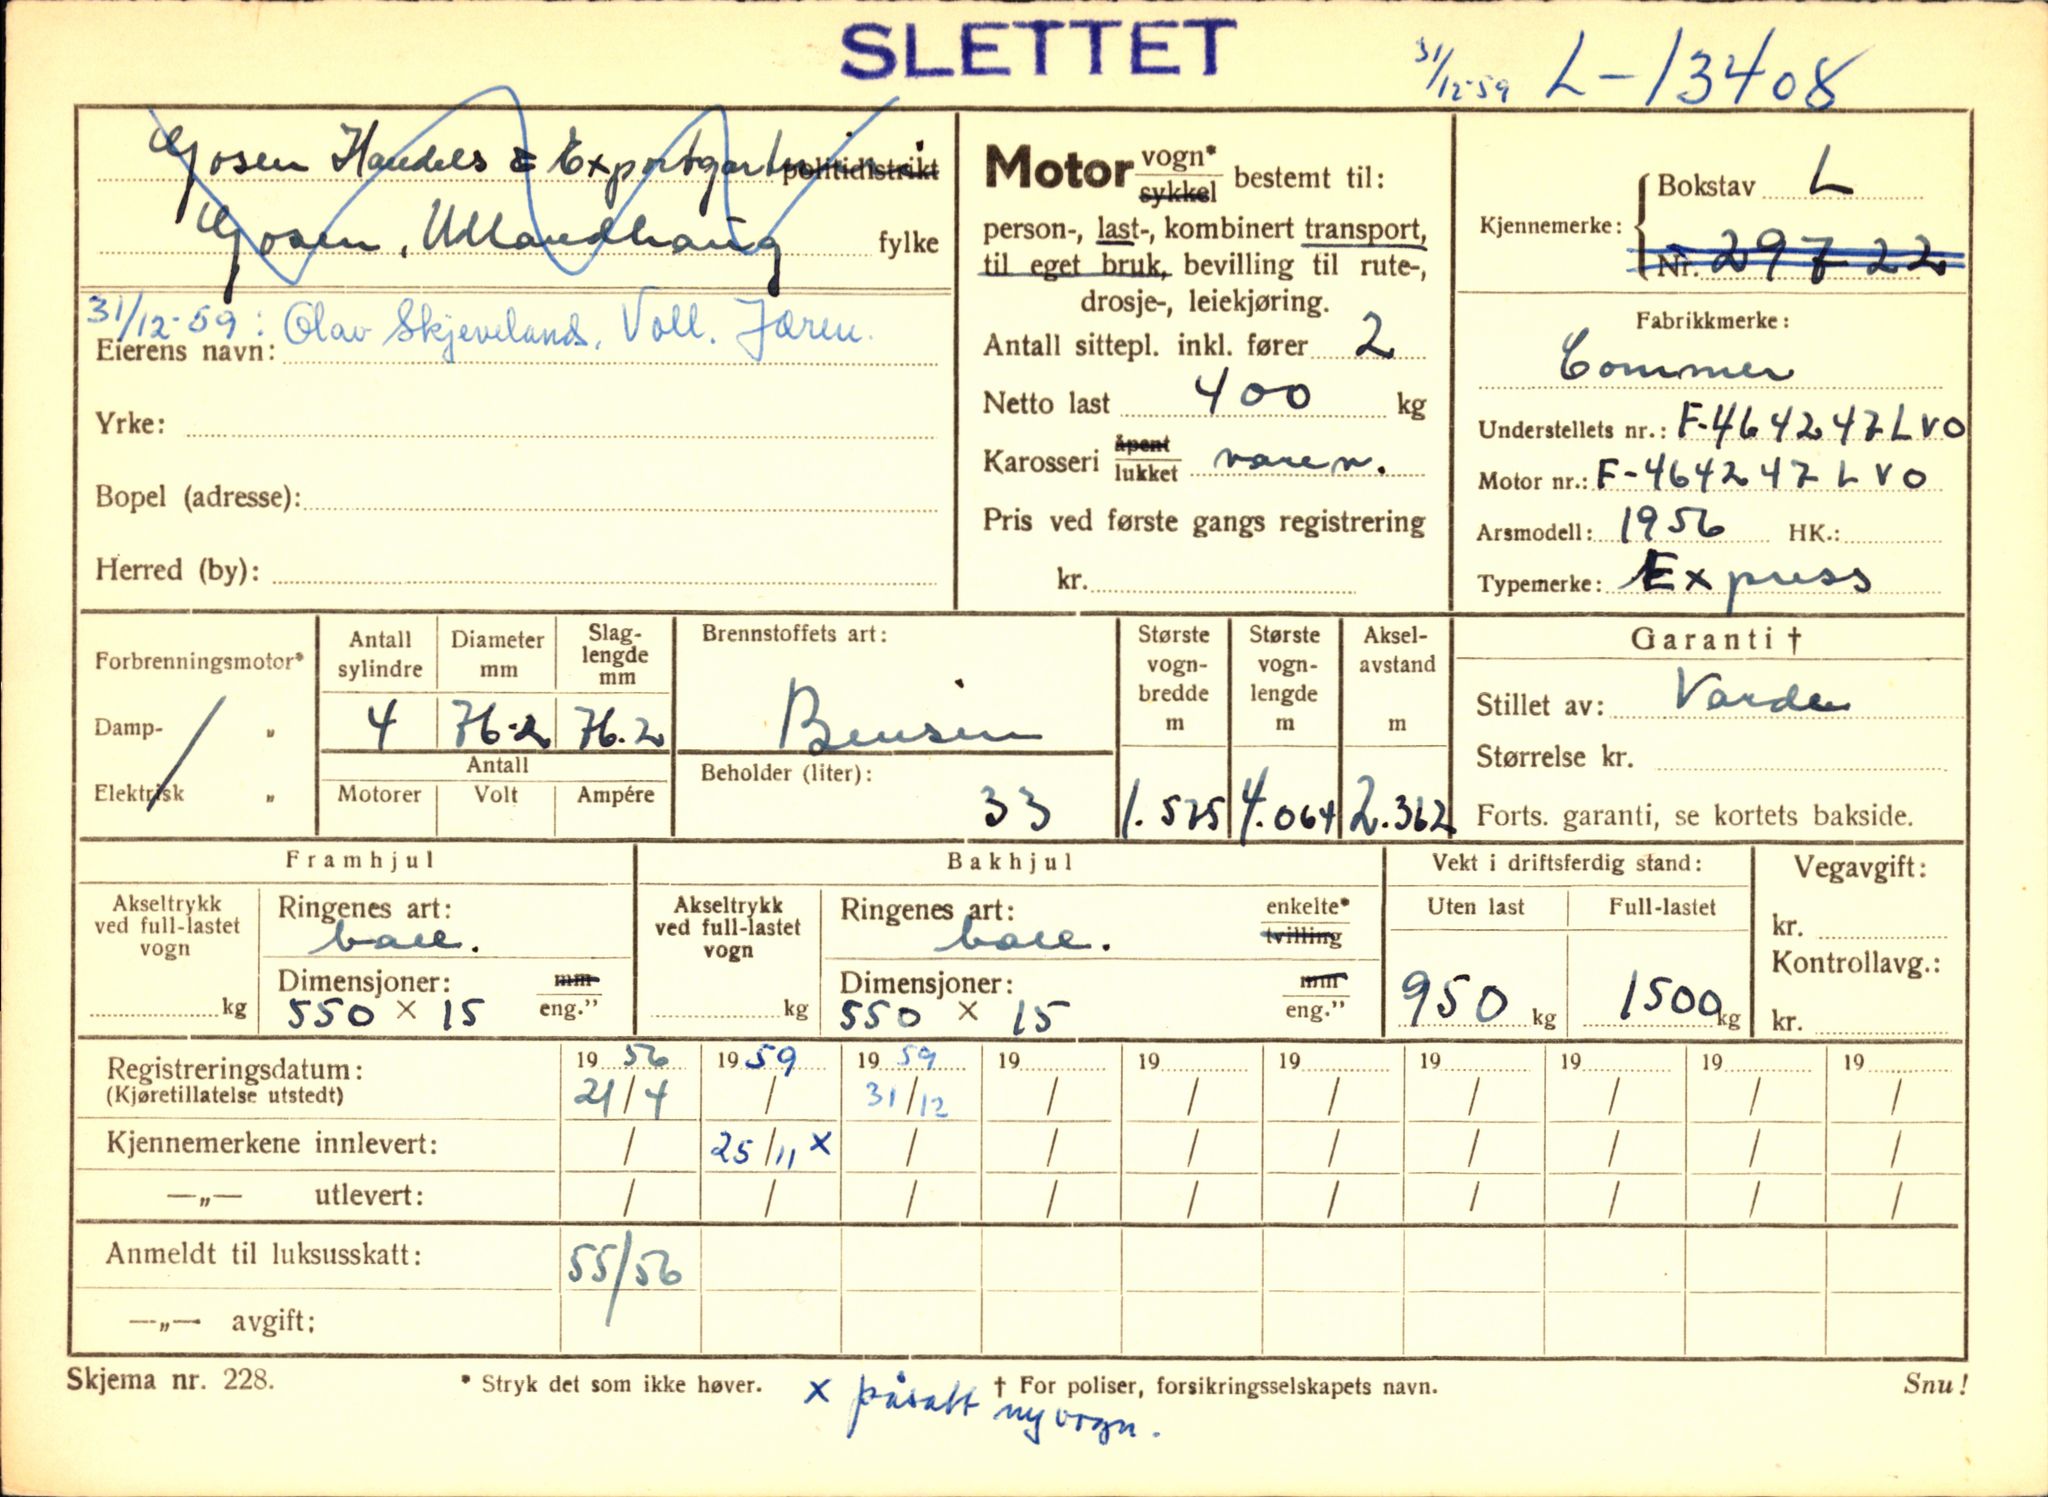 SLETTET
31/12-59 L-13408
Gosen Handels & Exportgartneri politidistrikt
Gosen, Ullandhaug fylke
31/12-59: Olav Skjeveland, Voll. Jæren.
Eierens navn:
Yrke:
Bopel (adresse):
Herred (by):
Motor vogn* sykkel bestemt til:
person-, last-, kombinert transport,
til eget bruk, bevilling til rute-,
drosje-, leiekjøring.
Antall sittepl. inkl. fører 2
Netto last 400 kg
Karosseri åpent lukket varev.
Pris ved første gangs registrering
kr.
Kjennemerke: Bokstav L
Nr. 29722
Fabrikkmerke:
Commer
Understellets nr.: F-464247LVO
Motor nr.: F-464247LVO
Årsmodell: 1956 HK.:
Typemerke: Express
Forbrenningsmotor*
Damp- „
Elektrisk „
Antall sylindre
Diameter mm
Slag-lengde mm
4 76.2 76.2
Antall
Motorer Volt Ampére
Brennstoffets art:
Bensin
Beholder (liter):
33
Største vogn-bredde m
1.575
Største vogn-lengde m
4.064
Aksel-avstand m
2.362
Garanti †
Stillet av: Varden
Størrelse kr.
Forts. garanti, se kortets bakside.
Framhjul
Akseltrykk ved full-lastet vogn
kg
Ringenes art:
ball.
Dimensjoner: mm
550 x 15 eng."
Bakhjul
Akseltrykk ved full-lastet vogn
kg
Ringenes art: enkelte*
ball. tvilling
Dimensjoner: mm
550 x 15 eng."
Vekt i driftsferdig stand:
Uten last Full-lastet
950 kg 1500 kg
Vegavgift:
kr.
Kontrollavg.:
kr.
Registreringsdatum: 19 56 19 59 19 59 19 19 19 19 19 19 19
(Kjøretillatelse utstedt) 21/4 / 31/12 / / / / / / /
Kjennemerkene innlevert: / 25/11 x / / / / / / / /
—„— utlevert: / / / / / / / / / /
Anmeldt til luksusskatt: 55/56
—„— avgift:
Skjema nr. 228. * Stryk det som ikke høver. † For poliser, forsikringsselskapets navn. Snu!
x påsatt ny vogn.